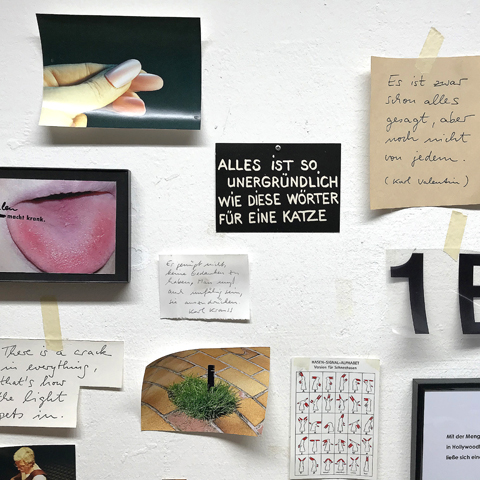 Es ist zwar
schon alles
gesagt, aber
noch nicht
von jedem.
(Karl Valentin)
ALLES IST SO
UNERGRÜNDLICH
WIE DIESE WÖRTER
FÜR EINE KATZE
macht krank.
Es genügt nicht,
keine Gedanken zu
haben, Man muß
auch unfähig sein,
sie auszudrücken
Karl Kraus
1
There is a crack
in everything,
that's how
the light
gets in.
HASEN-SIGNAL-ALPHABET
Version für Schneehasen
Mit der
in Hollywood
ließe sich